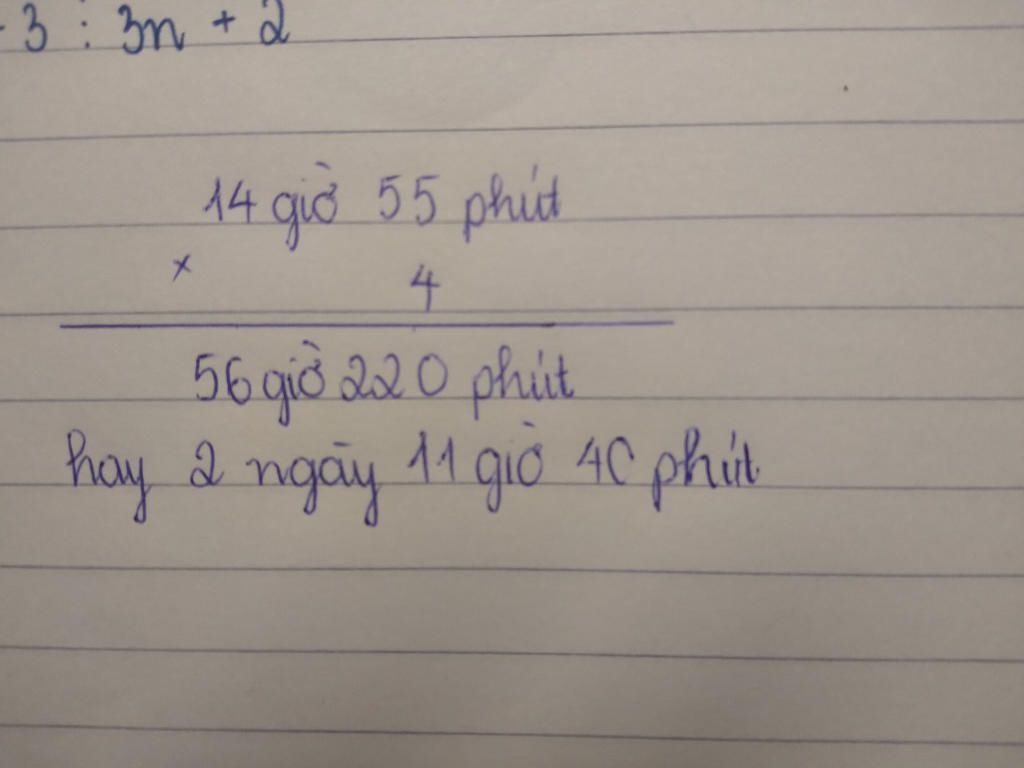 3 : 3n + 2
14 giờ 55 phút
×
4
56 giờ 220 phút
hay 2 ngày 11 giờ 40 phút